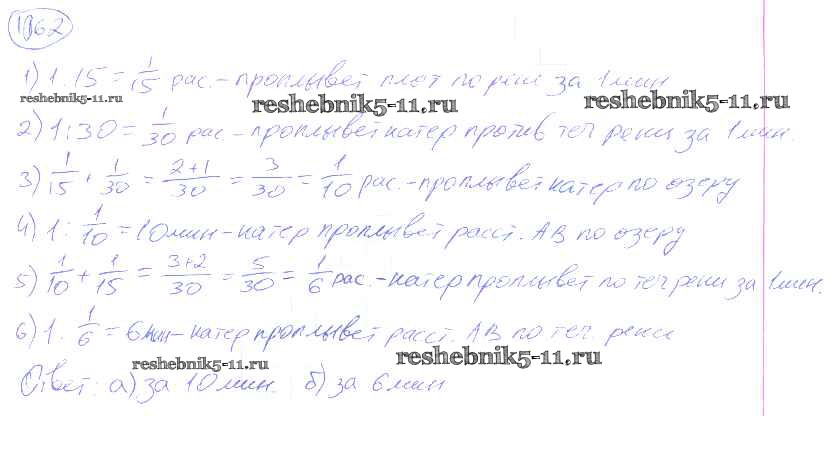 1062
1) 1 : 15 = 1/15 рас. – проплывет плот по реки за 1 мин
reshebnik5-11.ru reshebnik5-11.ru reshebnik5-11.ru
2) 1 : 30 = 1/30 рас – проплывет катер против теч реки за 1 мин.
3) 1/15 + 1/30 = 2+1/30 = 3/30 = 1/10 рас. – проплывет катер по озеру
4) 1 : 1/10 = 10 мин – катер проплывет расст. AB по озеру
5) 1/10 + 1/15 = 3+2/30 = 5/30 = 1/6 рас. – катер проплывет по теч реки за 1 мин.
6) 1 : 1/6 = 6 мин – катер проплывет расст. AB по теч. реки
reshebnik5-11.ru reshebnik5-11.ru
Ответ: а) за 10 мин. б) за 6 мин